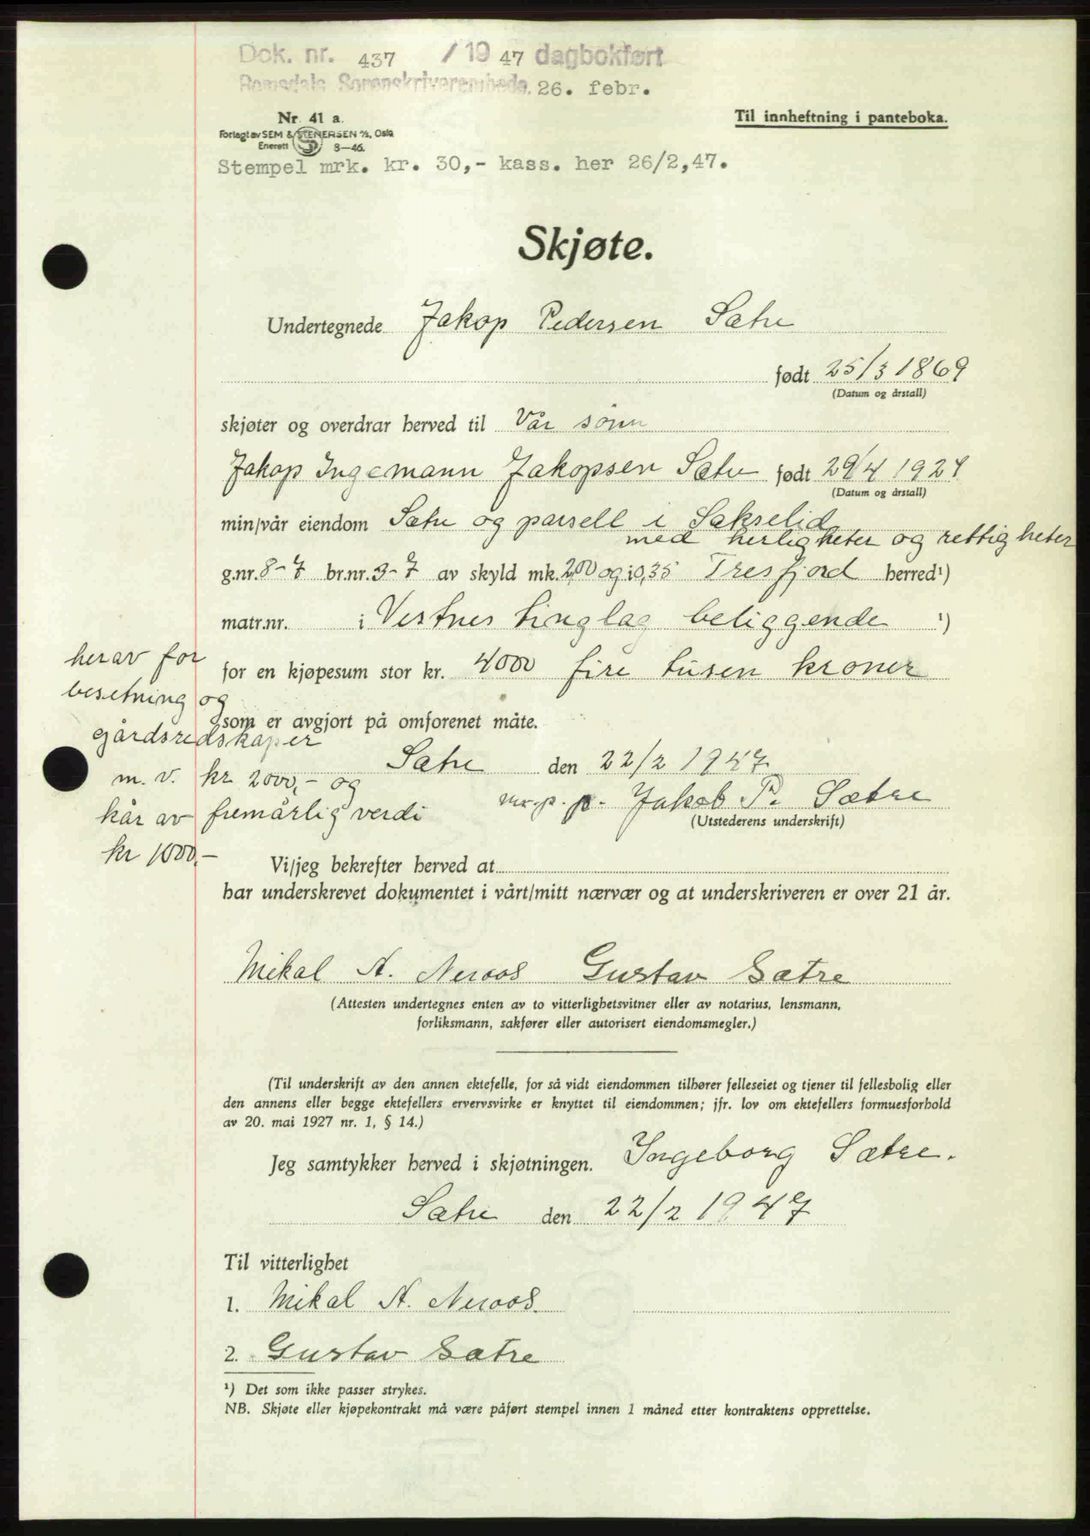 Dok. nr. 437 / 19 47 dagbokført
Romsdals Sorenskriverembede. 26. febr.
Nr. 41 a.
Til innheftning i panteboka.
Forlagt av SEM & STENERSEN A/S, Oslo
Enerett 8—46.
Stempel mrk. kr. 30,- kass. her 26/2,47.
Skjøte.
Undertegnede Jakop Pedersen Sætre
født 25/3 1869
(Datum og årstall)
skjøter og overdrar herved til Vår sønn
Jakop Ingemann Jakopsen Sætre født 29/4 1927
(Datum og årstall)
min/vår eiendom Sætre og parsell i Sakselid
med herligheter og rettigheter
g.nr. 8-7 br.nr. 3-7 av skyld mk. 2,00 og i 0,35 Tresfjord herred¹)
matr.nr. i Vestnes tinglag beliggende ¹)
for en kjøpesum stor kr. 4000 fire tusen kroner
herav for
besetning og
gårdsredskaper
m. v. kr 2000,- og
kår av femårlig verdi
kr 1000,-
som er avgjort på omforenet måte.
Sætre den 22/2 1947
m.p.p. Jakob P. Sætre
(Utstederens underskrift)
Vi/jeg bekrefter herved at
har underskrevet dokumentet i vårt/mitt nærvær og at underskriveren er over 21 år.
Mikal A. Neraas Gustav Sætre
(Attesten undertegnes enten av to vitterlighetsvitner eller av notarius, lensmann,
forliksmann, sakfører eller autorisert eiendomsmegler.)
(Til underskrift av den annen ektefelle, for så vidt eiendommen tilhører felleseiet og tjener til fellesbolig eller
den annens eller begge ektefellers ervervsvirke er knyttet til eiendommen; jfr. lov om ektefellers formuesforhold
av 20. mai 1927 nr. 1, § 14.)
Jeg samtykker herved i skjøtningen. Ingeborg Sætre.
Sætre den 22/2 1947
Til vitterlighet
1. Mikal A. Neraas.
2. Gustav Sætre
¹) Det som ikke passer strykes.
NB. Skjøte eller kjøpekontrakt må være påført stempel innen 1 måned etter kontraktens opprettelse.